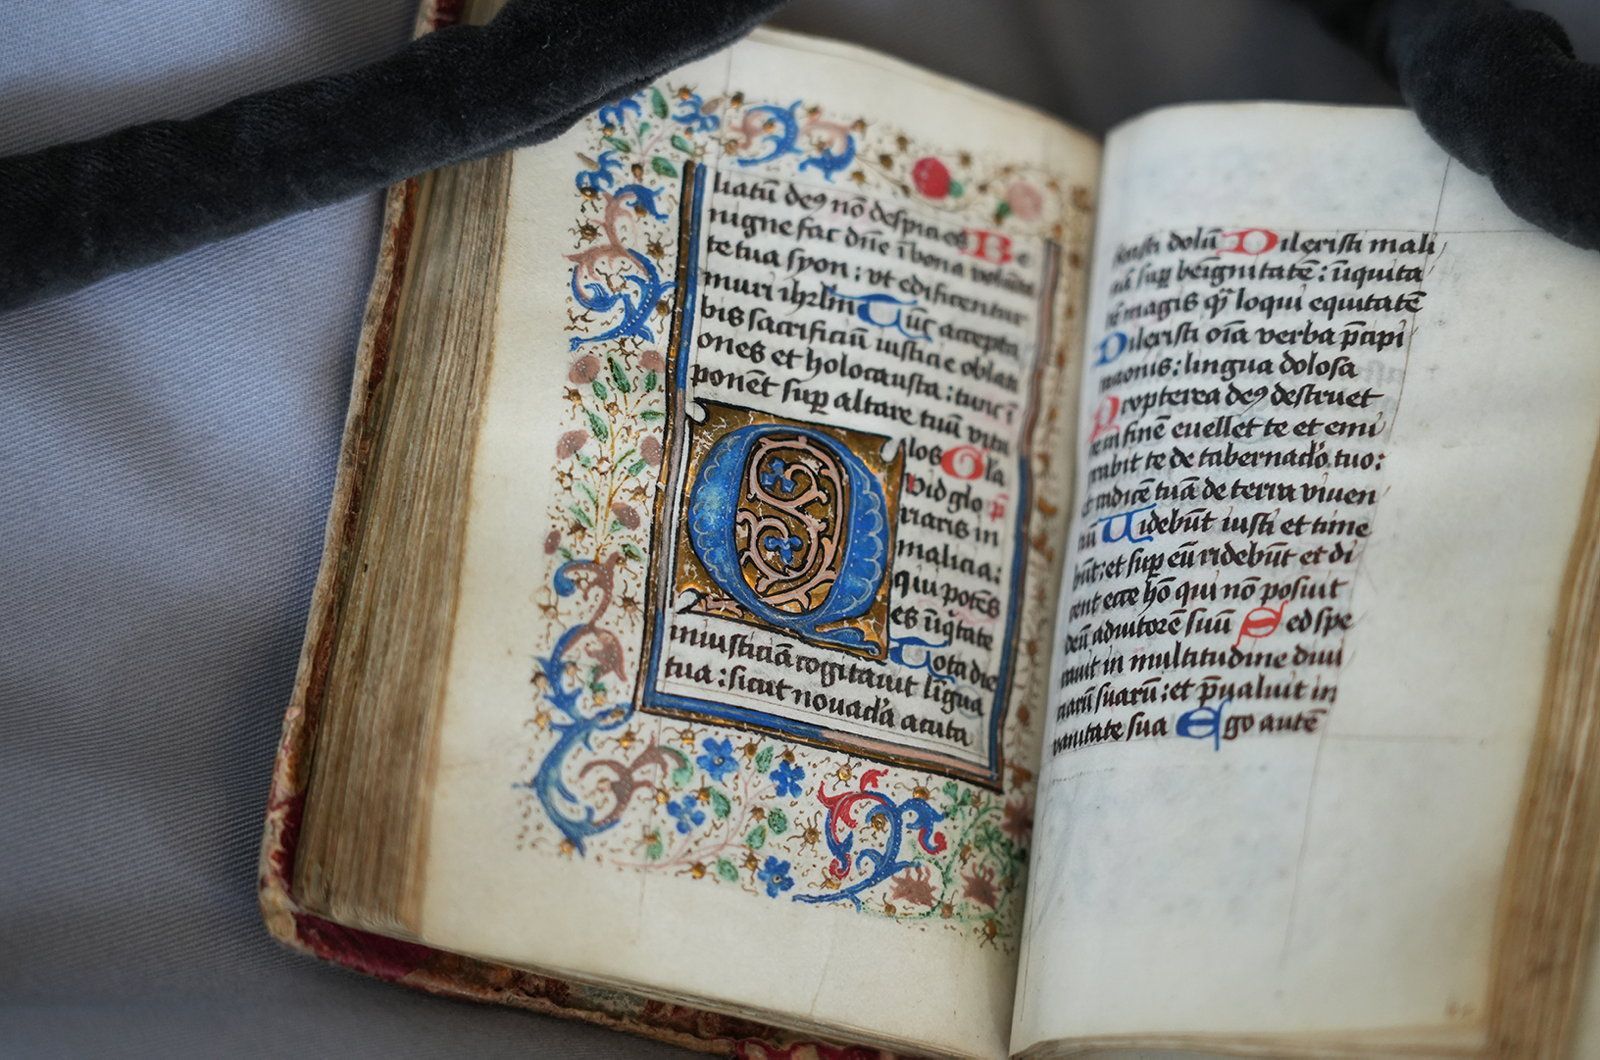 liatū deꝰ nō despicies Be
nigne fac dn̄e ī bona volūta
te tua syon: vt edificentur
muri ihrlm Tūc acceptab
bis sacrificiū iusticie oblati
ones et holocausta: tunc ī
ponēt suꝑ altare tuū vitu
los Gla
Quid glo p̄
riaris in
malicia:
qui potēs
es īīqtate
Tota die
iniusticiā cogitauit līgua
tua: sicut nouacl̄a acuta
fecisti dolū Dilexisti mali
ciā suꝑ beīgnitatē: īīquita
tē magis qͣ loqui equitatē
Dilexisti oīa verba p̄cipi
tacionis: lingua dolosa
Propterea deꝰ destruet
te in finē euellet te et emi
grabit te de tabernacl̄o tuo:
et radicē tuā de terra viuen
tiū Uidebūt iusti et time
būt: et suꝑ eū ridebūt et di
cent ecce hō qui nō posuit
deū adiutorē suū Sed spe
rauit in multitudine diui
ciarū suarū: et p̄ualuit in
vanitate sua Ego autē